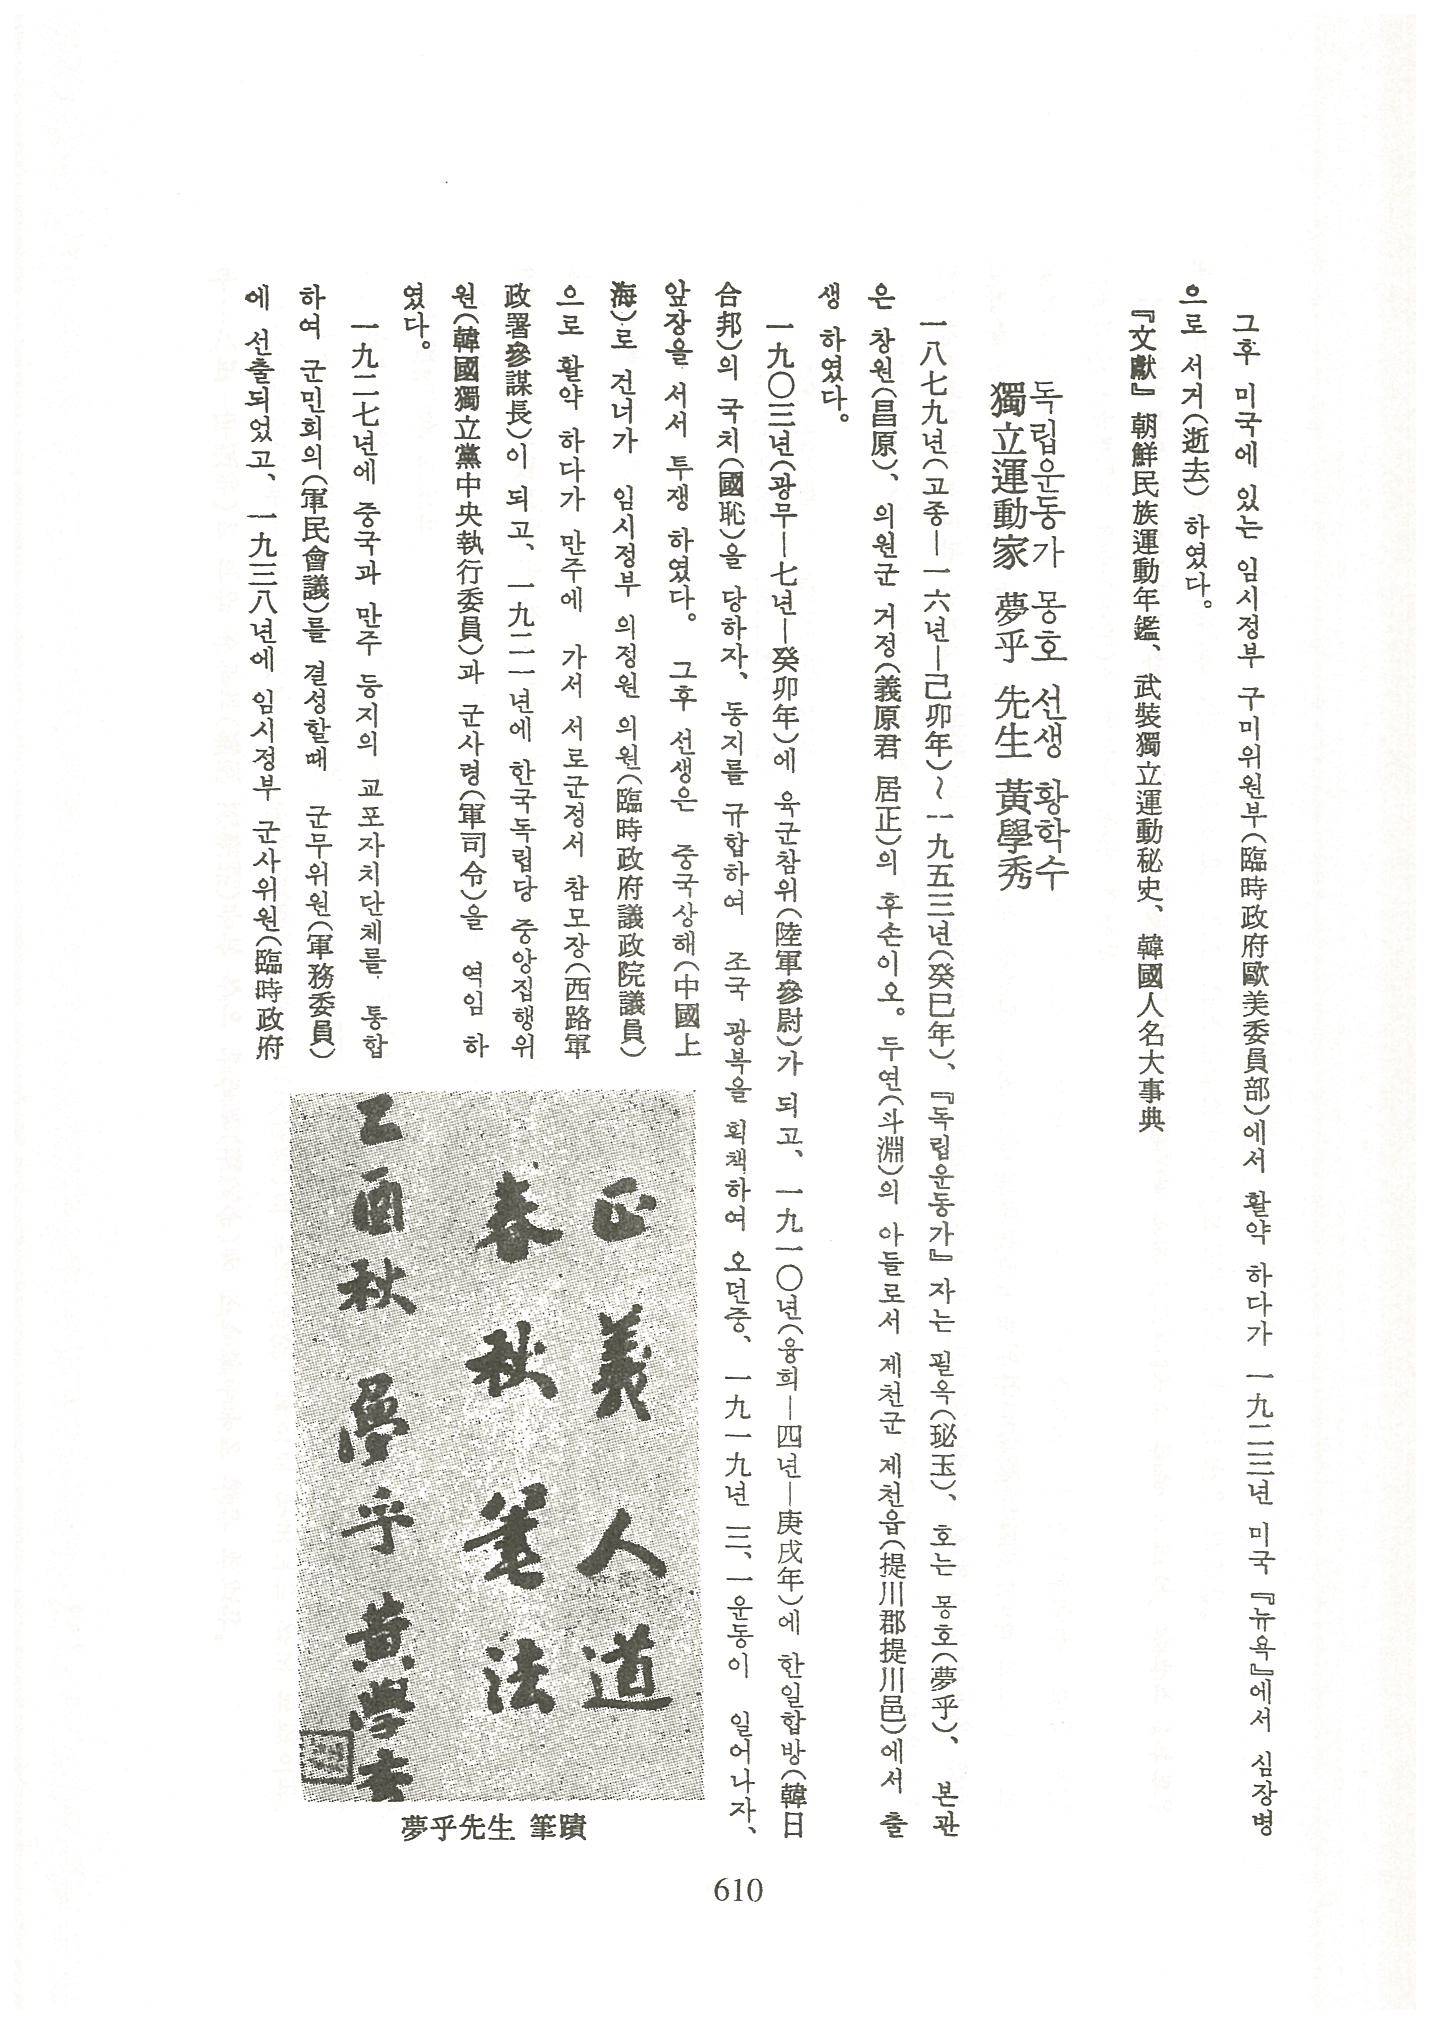 그후 미국에 있는 임시정부 구미위원부(臨時政府歐美委員部)에서 활약 하다가 一九二三년 미국『뉴욕』에서 심장병
으로 서거(逝去) 하였다。
『文獻』朝鮮民族運動年鑑、武裝獨立運動秘史、韓國人名大事典
독립운동가 몽호 선생 황학수
獨立運動家 夢乎 先生 黃學秀
一八七九년(고종—一六年—己卯年)~一九五三년(癸巳年)、『독립운동가』자는 필옥(珌玉)、호는 몽호(夢乎)、 본관
은 창원(昌原)、의원군 거정(義原君 居正)의 후손이오。두연(斗淵)의 아들로서 제천군 제천읍(提川郡提川邑)에서 출
생 하였다。
一九〇三년(광무—七년—癸卯年)에 육군참위(陸軍參尉)가 되고、一九一〇년(융희—四년—庚戌年)에 한일합방(韓日
合邦)의 국치(國恥)을 당하자、동지를 규합하여 조국 광복을 획책하여 오던중、一九一九년 三、一운동이 일어나자、
앞장을 서서 투쟁 하였다。 그후 선생은 중국상해(中國上
海)로 건너가 임시정부 의정원 의원(臨時政府議政院議員)
으로 활약 하다가 만주에 가서 서로군정서 참모장(西路軍
政署參謀長)이 되고、一九二一년에 한국독립당 중앙집행위
원(韓國獨立黨中央執行委員)과 군사령(軍司令)을 역임 하
였다。
一九二七년에 중국과 만주 등지의 교포자치단체를 통합
하여 군민회의(軍民會議)를 결성할때 군무위원(軍務委員)
에 선출되었고、一九三八년에 임시정부 군사위원(臨時政府
正義人道
春秋筆法
乙酉秋 夢乎 黃學秀
夢乎先生 筆蹟
610